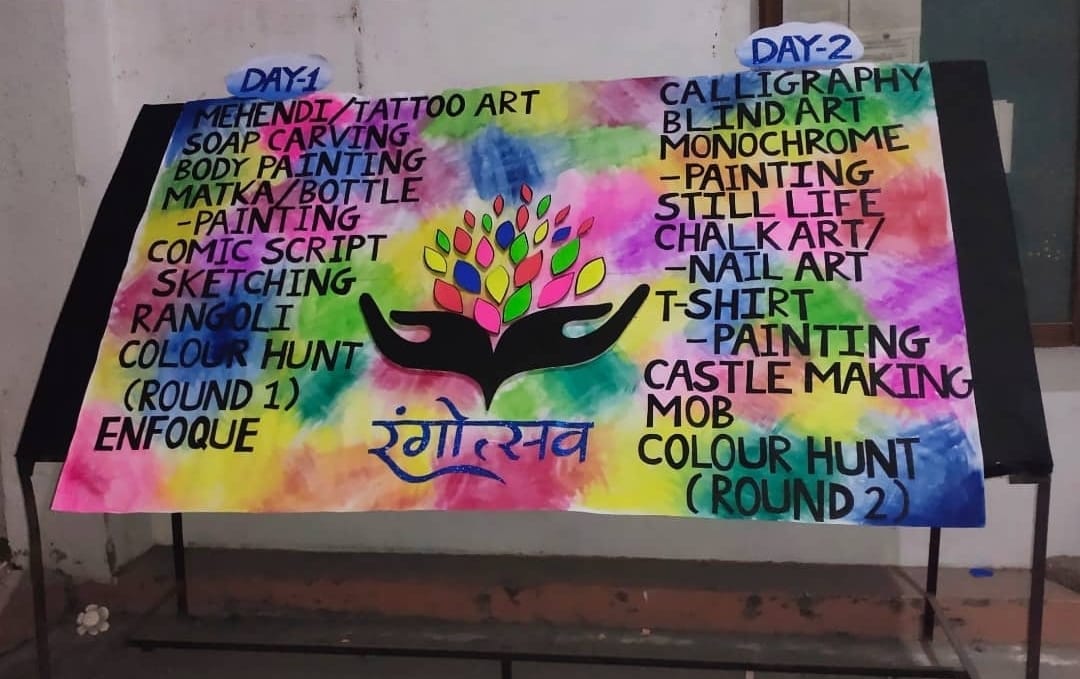 DAY-1
MEHENDI/TATTOO ART
SOAP CARVING
BODY PAINTING
MATKA/BOTTLE
-PAINTING
COMIC SCRIPT
SKETCHING
RANGOLI
COLOUR HUNT
(ROUND 1)
ENFOQUE
रंगोत्सव
DAY-2
CALLIGRAPHY
BLIND ART
MONOCHROME
-PAINTING
STILL LIFE
CHALK ART/
-NAIL ART
T-SHIRT
-PAINTING
CASTLE MAKING
MOB
COLOUR HUNT
(ROUND 2)